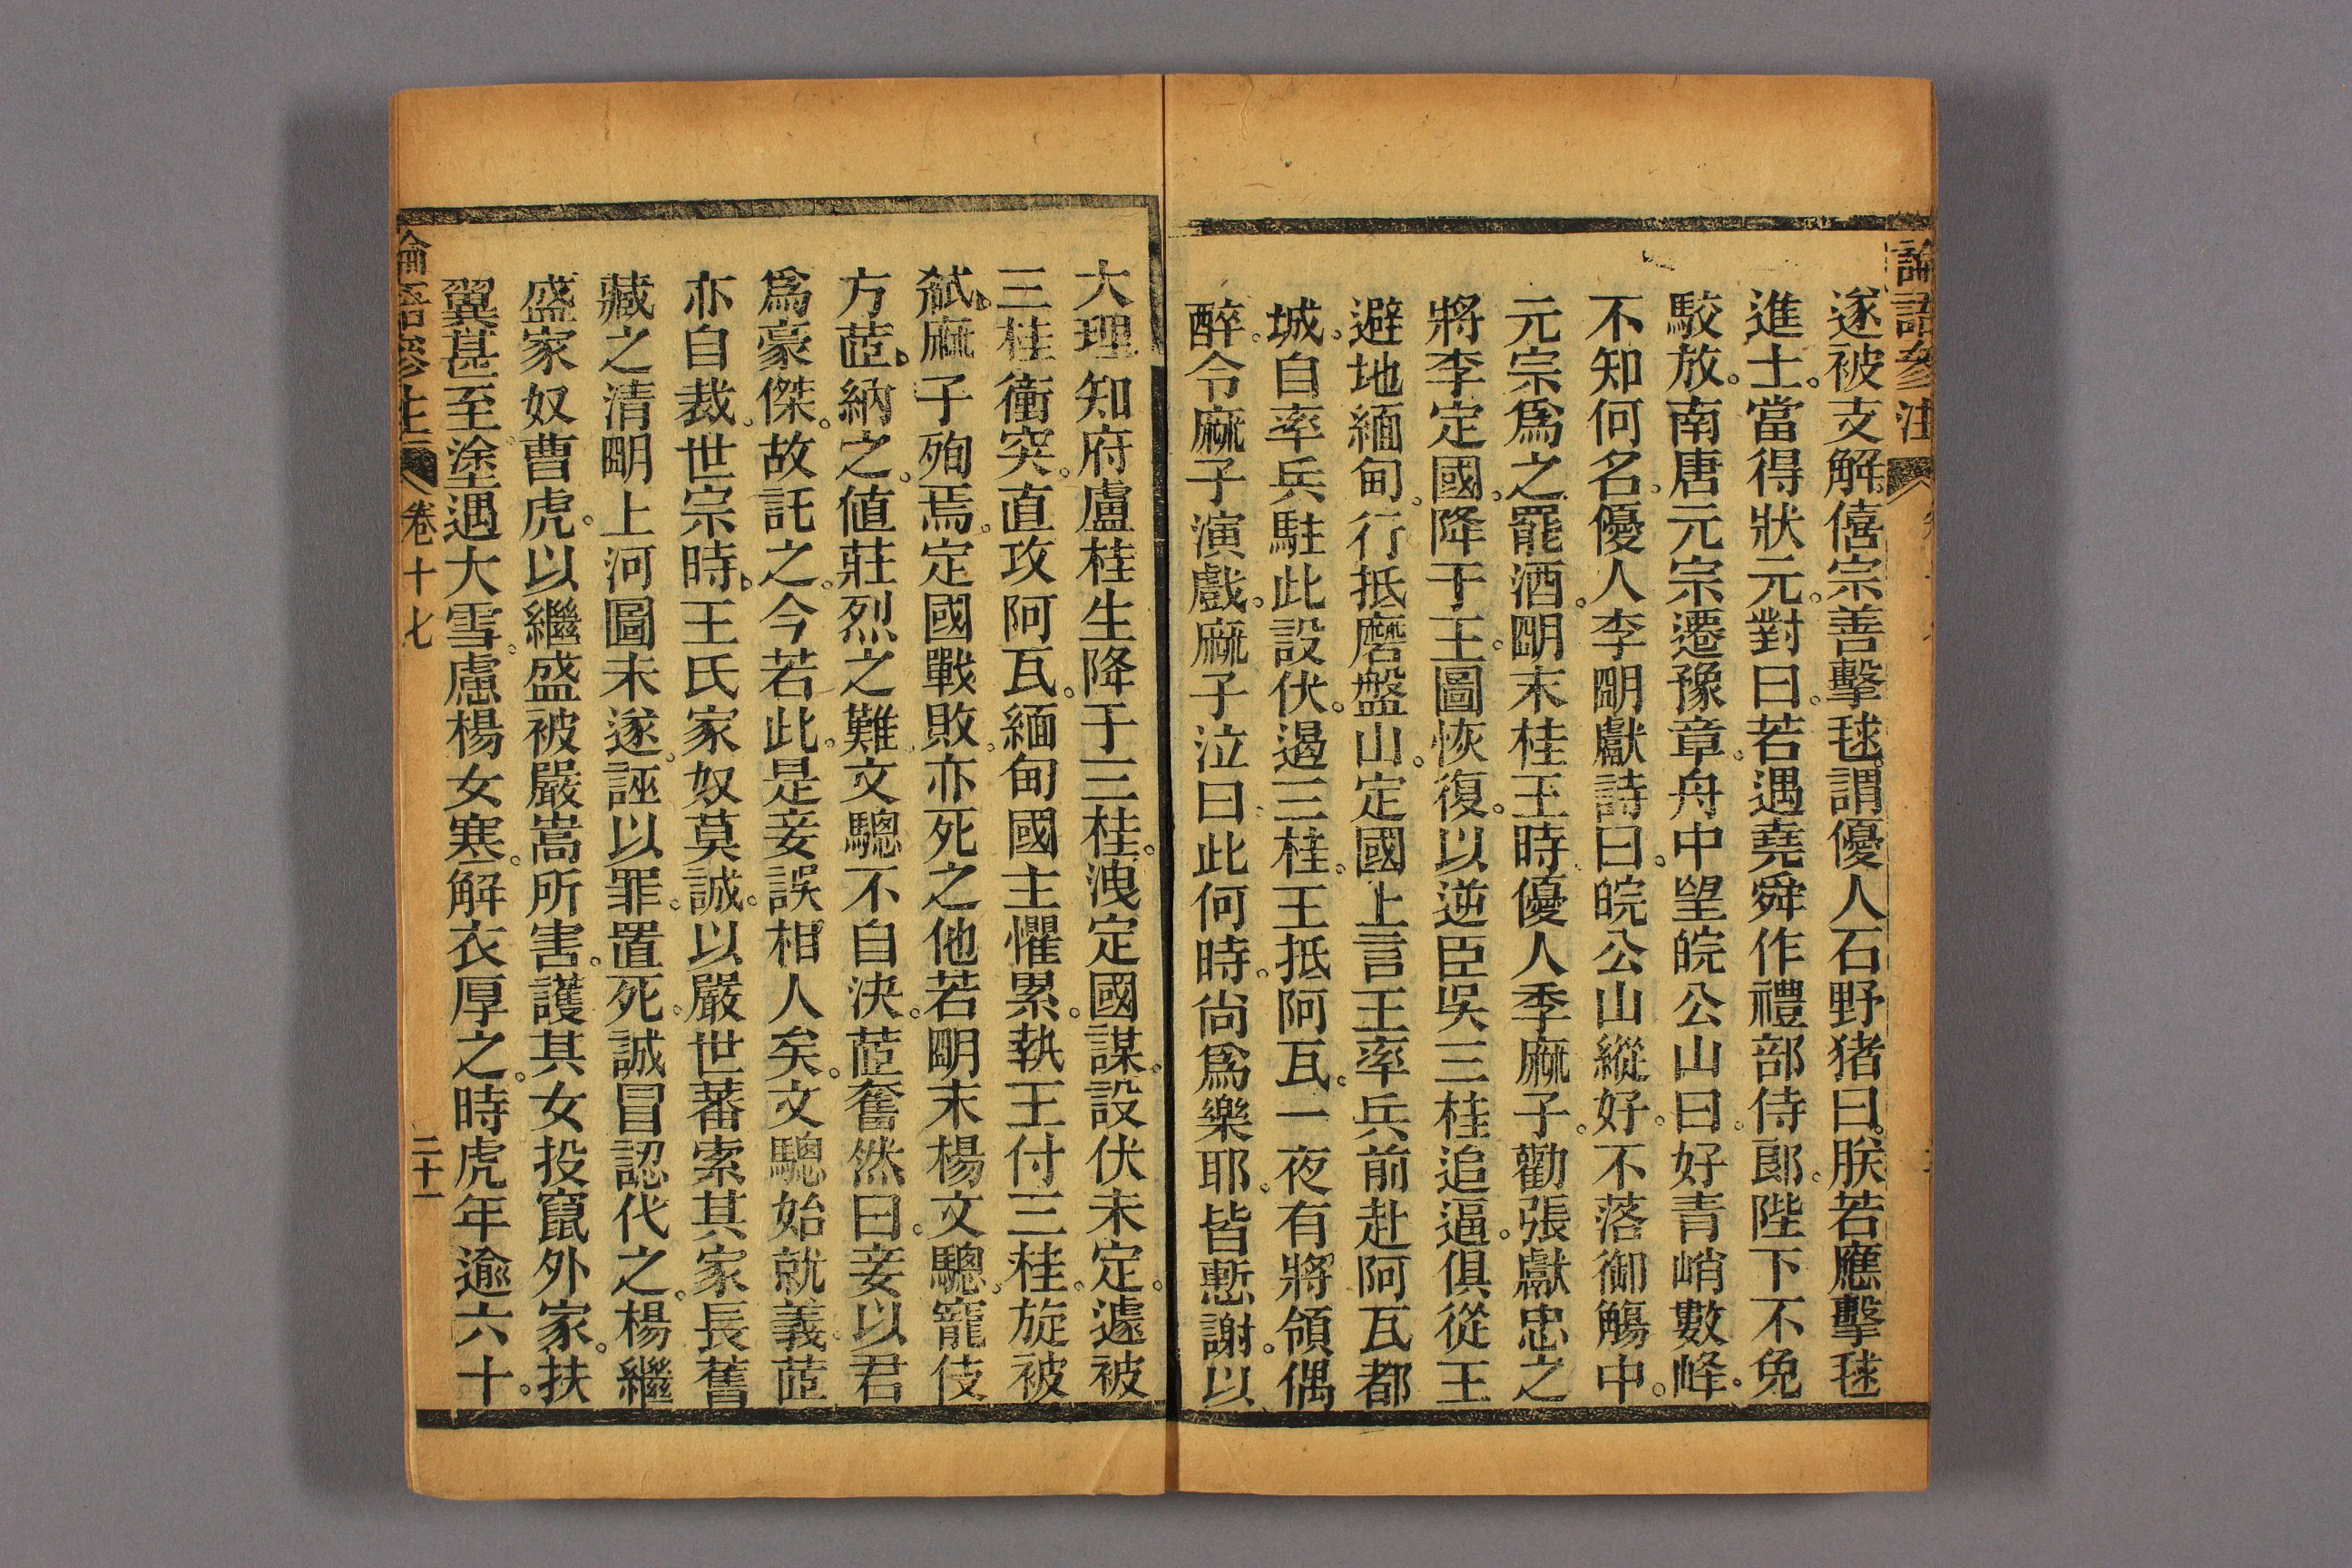 論語參注
遂被支解。僖宗善擊毬。謂優人石野猪曰。朕若應擊毬
進士。當得狀元。對曰。若遇堯舜作禮部侍郎。陛下不免
駮放。南唐元宗遷豫章。舟中望皖公山曰。好青峭數峰。
不知何名。優人李朙獻詩曰。皖公山縱好。不落御觴中。
元宗爲之罷酒。朙末桂王時。優人季麻子。勸張獻忠之
將李定國。降于王。圖恢復。以逆臣吳三桂追逼。俱從王
避地緬甸。行抵磨盤山。定國上言王率兵前赴阿瓦都
城。自率兵駐此設伏。遏三桂。王抵阿瓦。一夜有將領偶
醉。令麻子演戲。麻子泣曰。此何時。尚爲樂耶。皆慙謝。以
大理知府盧桂生降于三桂。洩定國謀。設伏未定。遽被
三桂衝突。直攻阿瓦。緬甸國主懼累。執王付三桂。旋被
弒。麻子殉焉。定國戰敗。亦死之。他若朙末楊文驄。寵伎
方蓝。納之。値莊烈之難。文驄不自決。蓝奮然曰。妾以君
爲豪傑。故託之。今若此。是妾誤相人矣。文驄始就義。蓝
亦自裁。世宗時。王氏家奴莫誠。以嚴世蕃索其家長舊
藏之清朙上河圖未遂。誣以罪。置死。誠冒認代之。楊繼
盛家奴曹虎。以繼盛被嚴嵩所害。護其女投竄外家。扶
翼甚至。塗遇大雪。慮楊女寒。解衣厚之。時虎年逾六十。
論語參注
卷十七
二十一